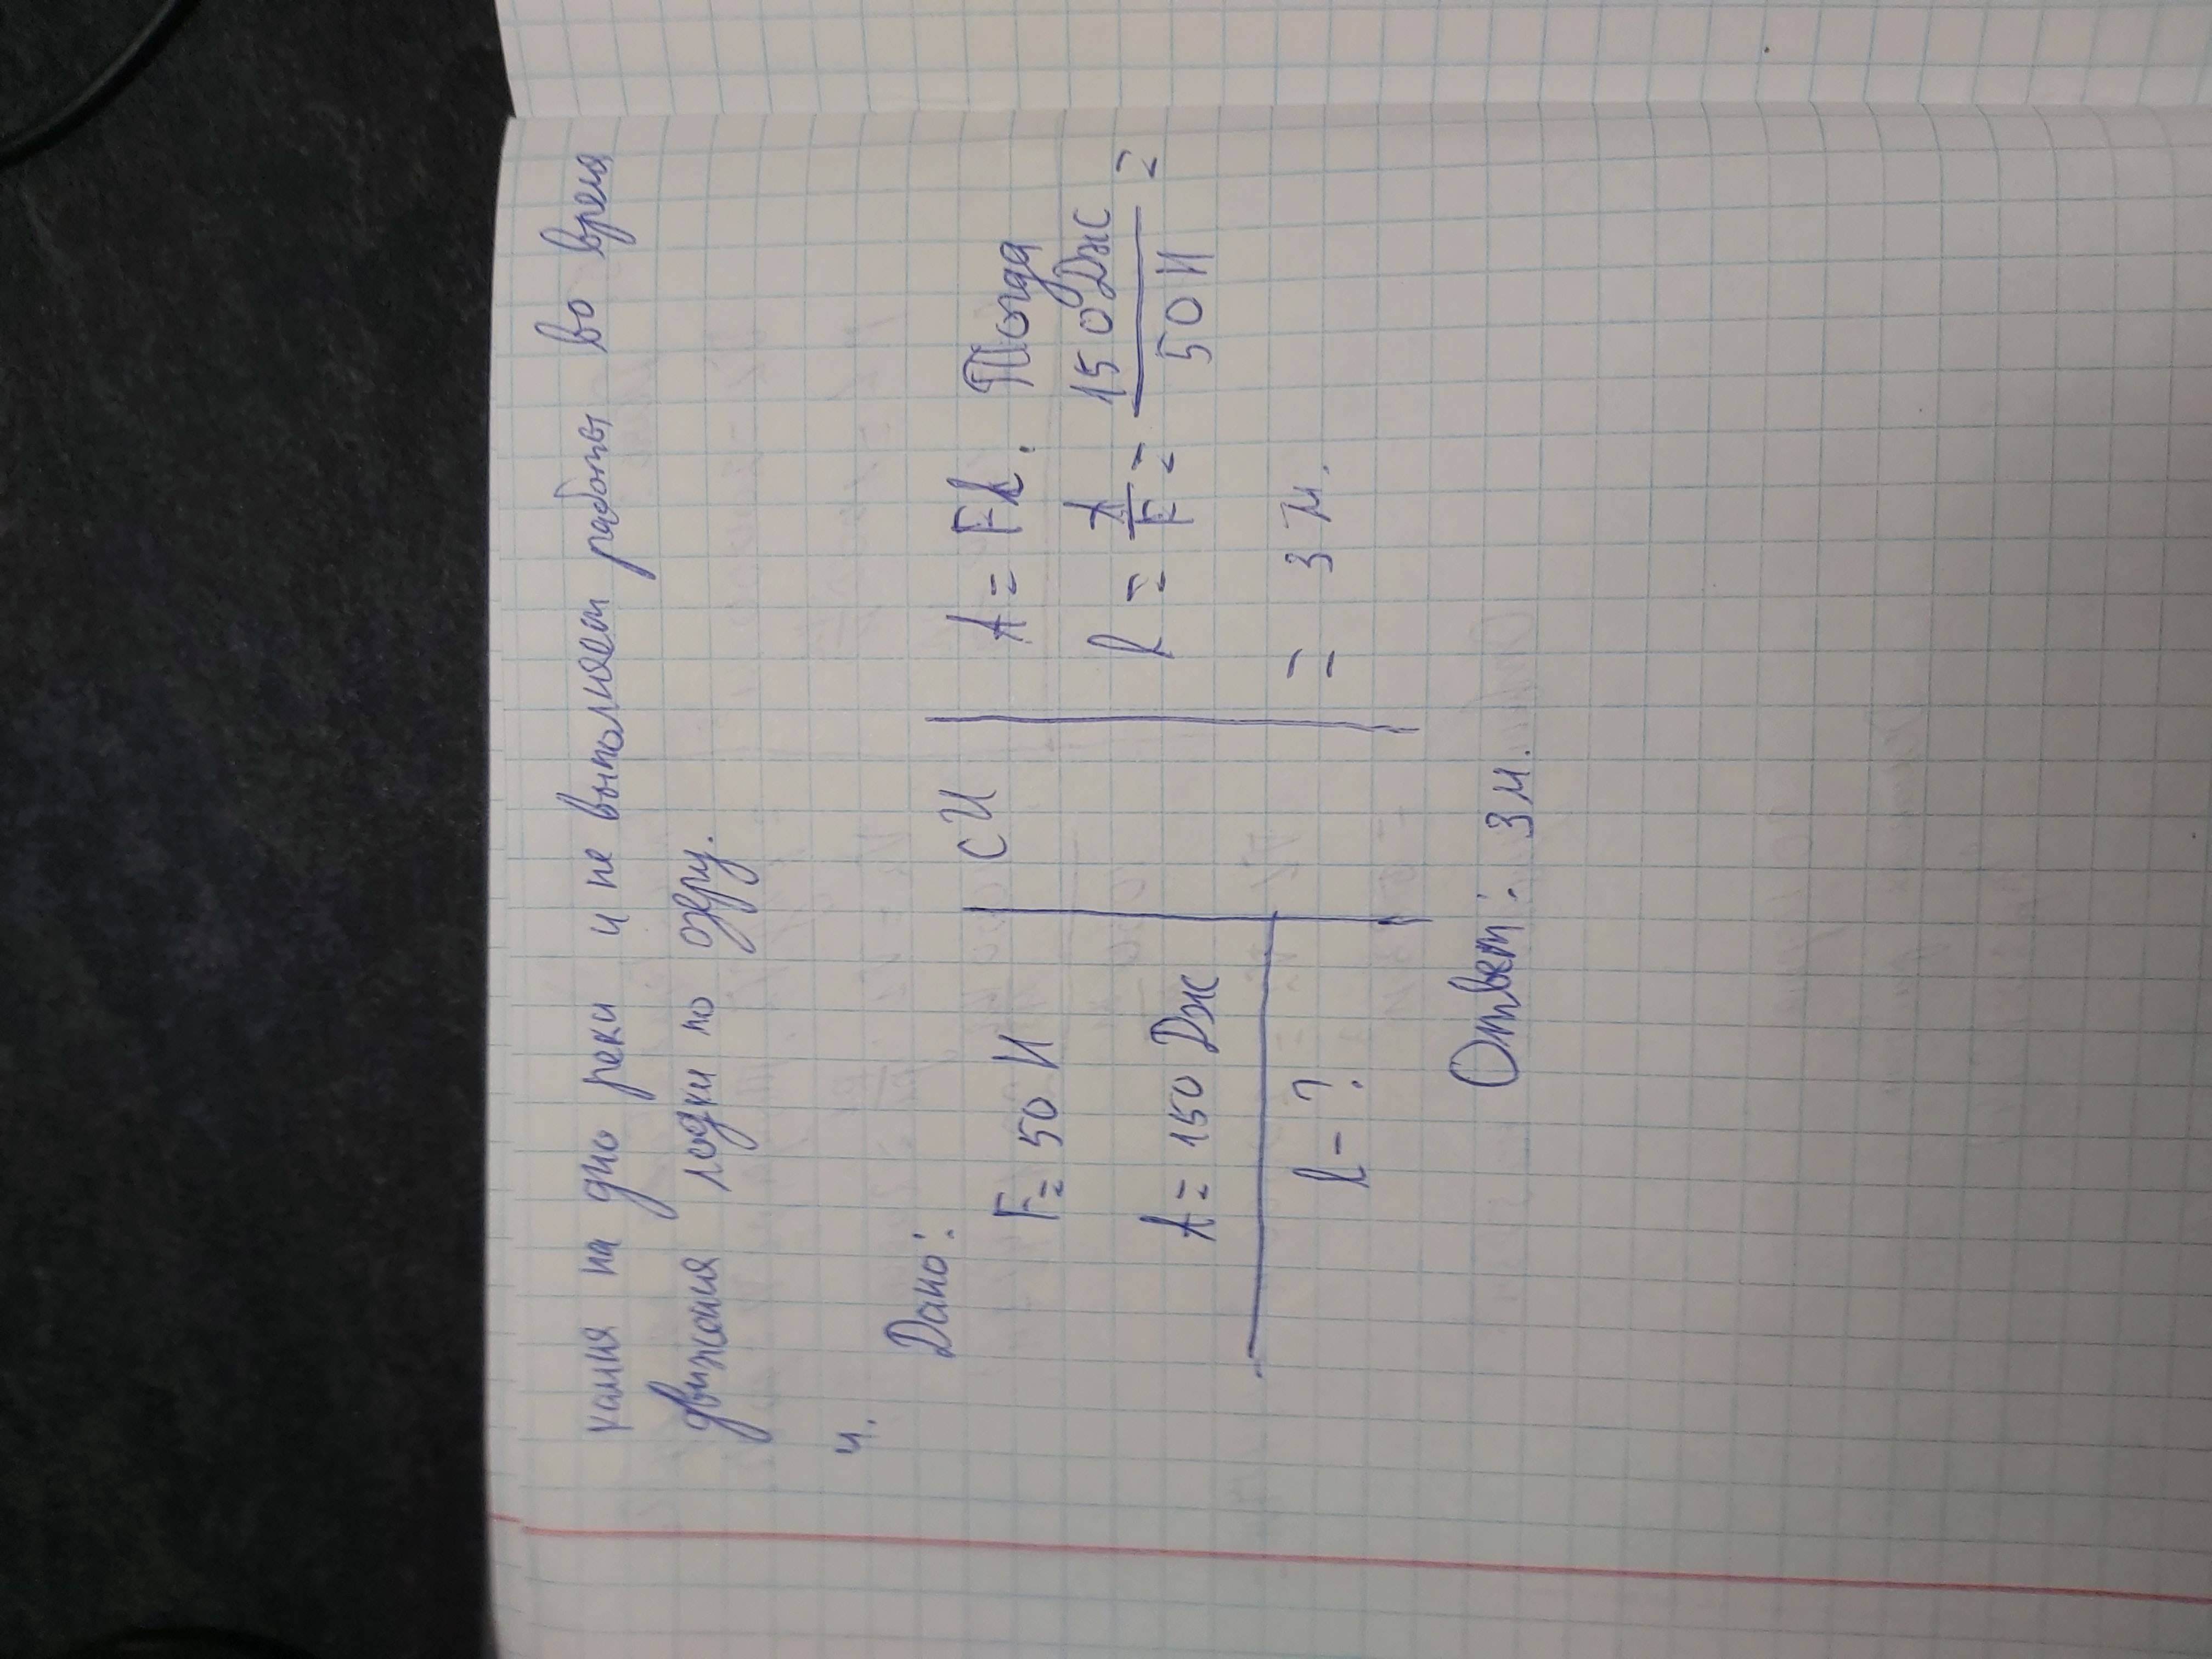 камня на дно реки и не выполняет работы во время
движения лодки по озеру.
4.
Дано:
F = 50 Н
A = 150 Дж
l - ?
СИ
A = Fl. Тогда
l = A/F = 150 Дж/50 Н =
= 3 м.
Ответ: 3 м.